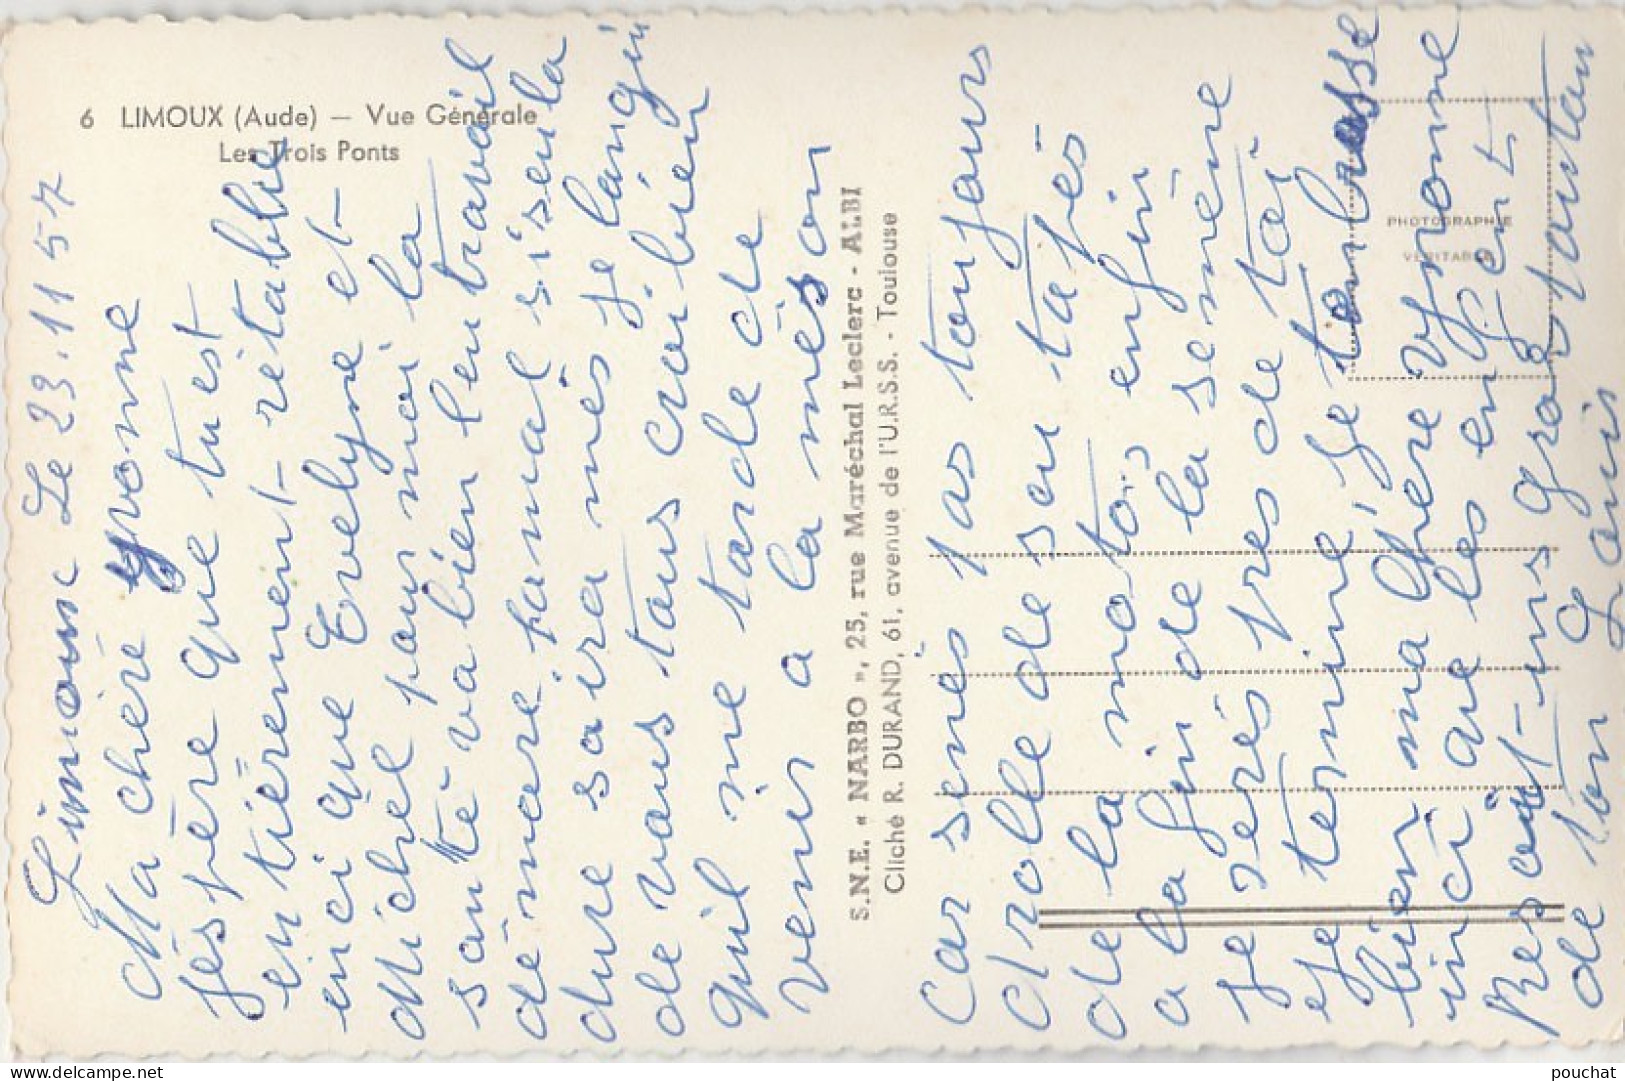 6 LIMOUX (Aude) — Vue Générale
Les Trois Ponts
Limoux Le 23.11 57
Ma chère yvonne
Jéspère que tu est
entièrement rétablie
einci que Evelyne et
Michel pour moi la
santé va bien leu travail
démare pamal si seu la
dure saira més je langui
de vous tous croi bien
quil me tarde de
venir a la méson
S.N.E. « NARBO », 25, rue Maréchal Leclerc - ALBI
Cliché R. DURAND, 61, avenue de l'U.R.S.S. - Toulouse
Car sənés pas toujours
drolle de seu tapés
de la moto enfin
a la fin de la seméne
je serés pres de toi
je termine, je tembrasse
bien ma chere yvonne
inci que les enfent
Resoit-ms gros tantan
de ton Louis
PHOTOGRAPHIE
VÉRITABLE
delcampe.net
pouchat